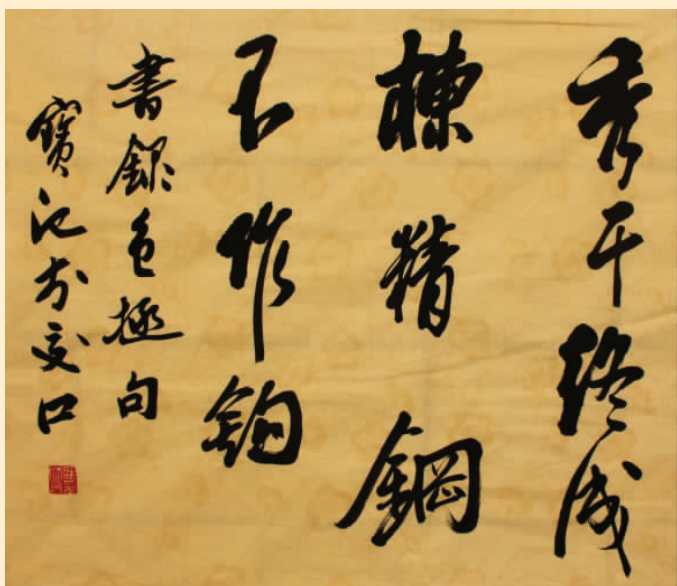 秀干终成
棟精鋼
不作鈎
書錄包拯句
寶江於交口